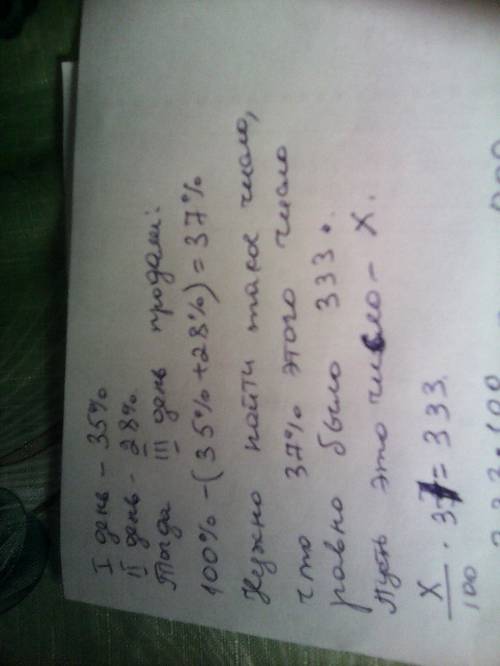 I день - 35%
II день - 28%
Тогда III день продали:
100% - (35% + 28%) = 37%
Нужно найти такое число,
что 37% этого число
равно было 333.
Пусть это число - X.
X/100 · 37 = 333